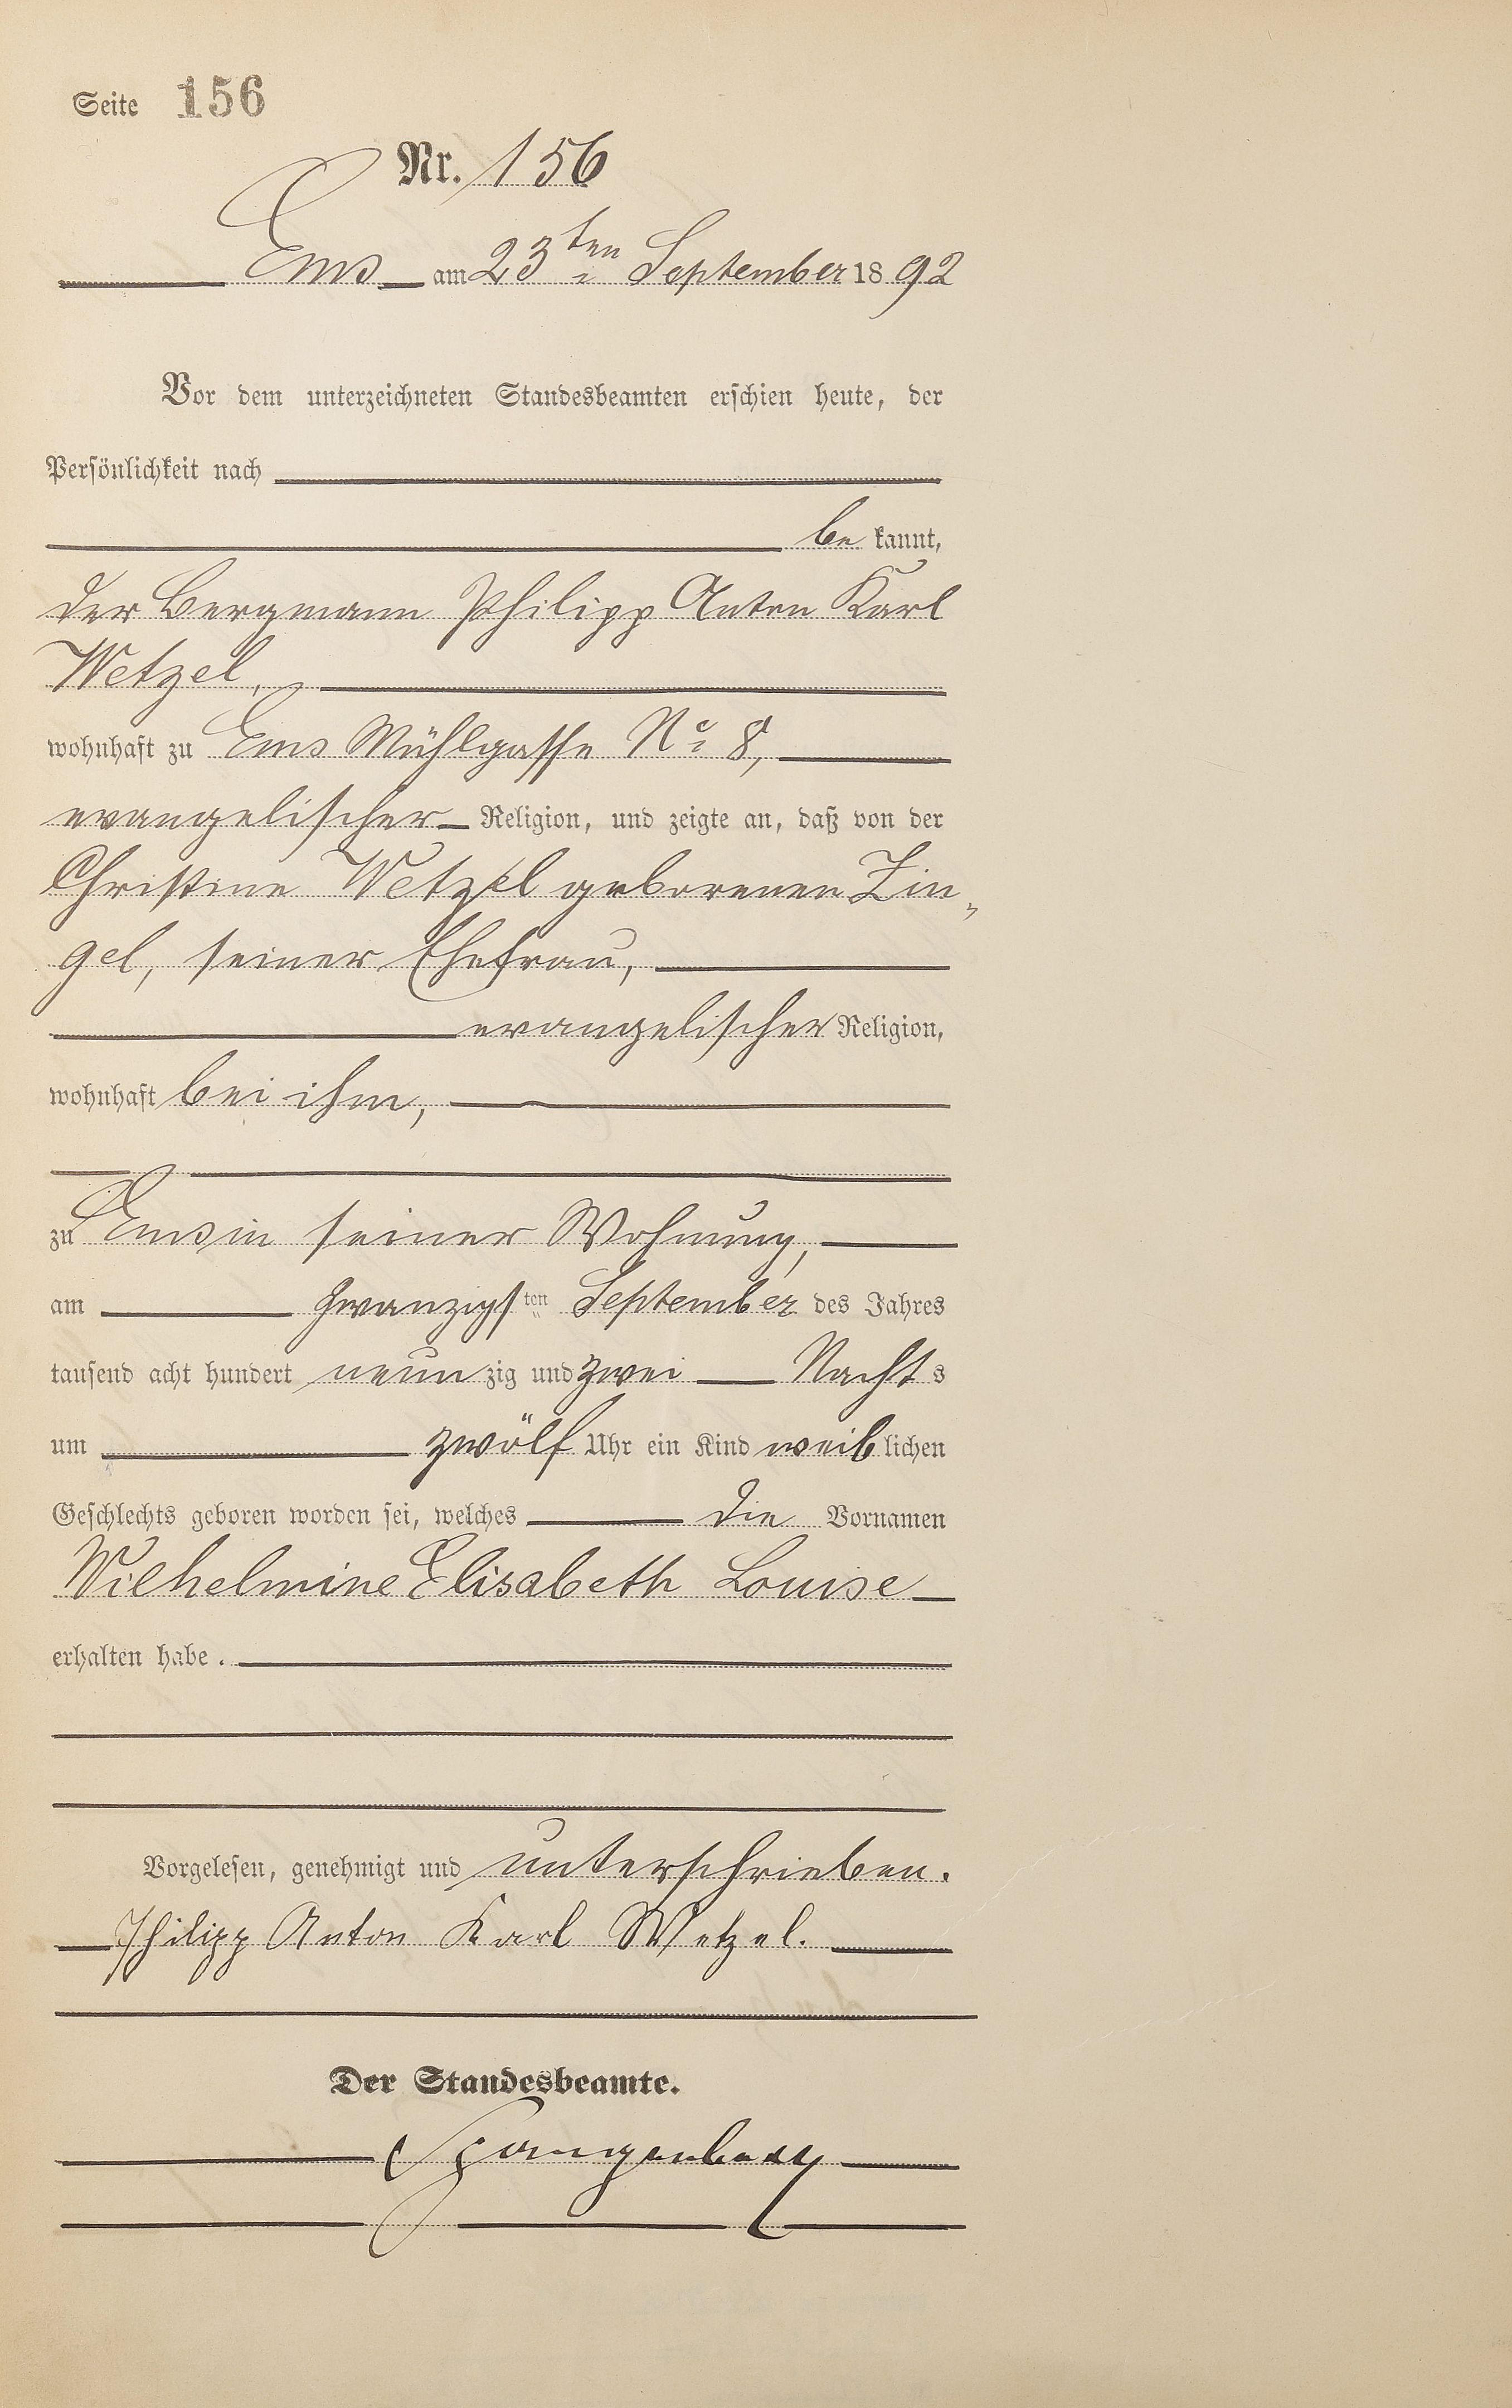 Seite 156
Nr. 156
Ems am 23ten September 1892
Vor dem unterzeichneten Standesbeamten erschien heute, der
Persönlichkeit nach
be kannt,
der Bergmann Philipp Anton Karl
Wetzel,
wohnhaft zu Ems Mühlgasse No 8,
evangelischer Religion, und zeigte an, daß von der
Christine Wetzel geborenen Zin„
gel, seiner Ehefrau,
evangelischer Religion,
wohnhaft bei ihm,
zu Ems in seiner Wohnung,
am zwanzigsten September des Jahres
tausend acht hundert neun zig und zwei Nachts
um zwölf Uhr ein Kind weiblichen
Geschlechts geboren worden sei, welches die Vornamen
Wilhelmine Elisabeth Louise
erhalten habe.
Vorgelesen, genehmigt und unterschrieben.
Philipp Anton Karl Wetzel.
Der Standesbeamte.
Spangenberg